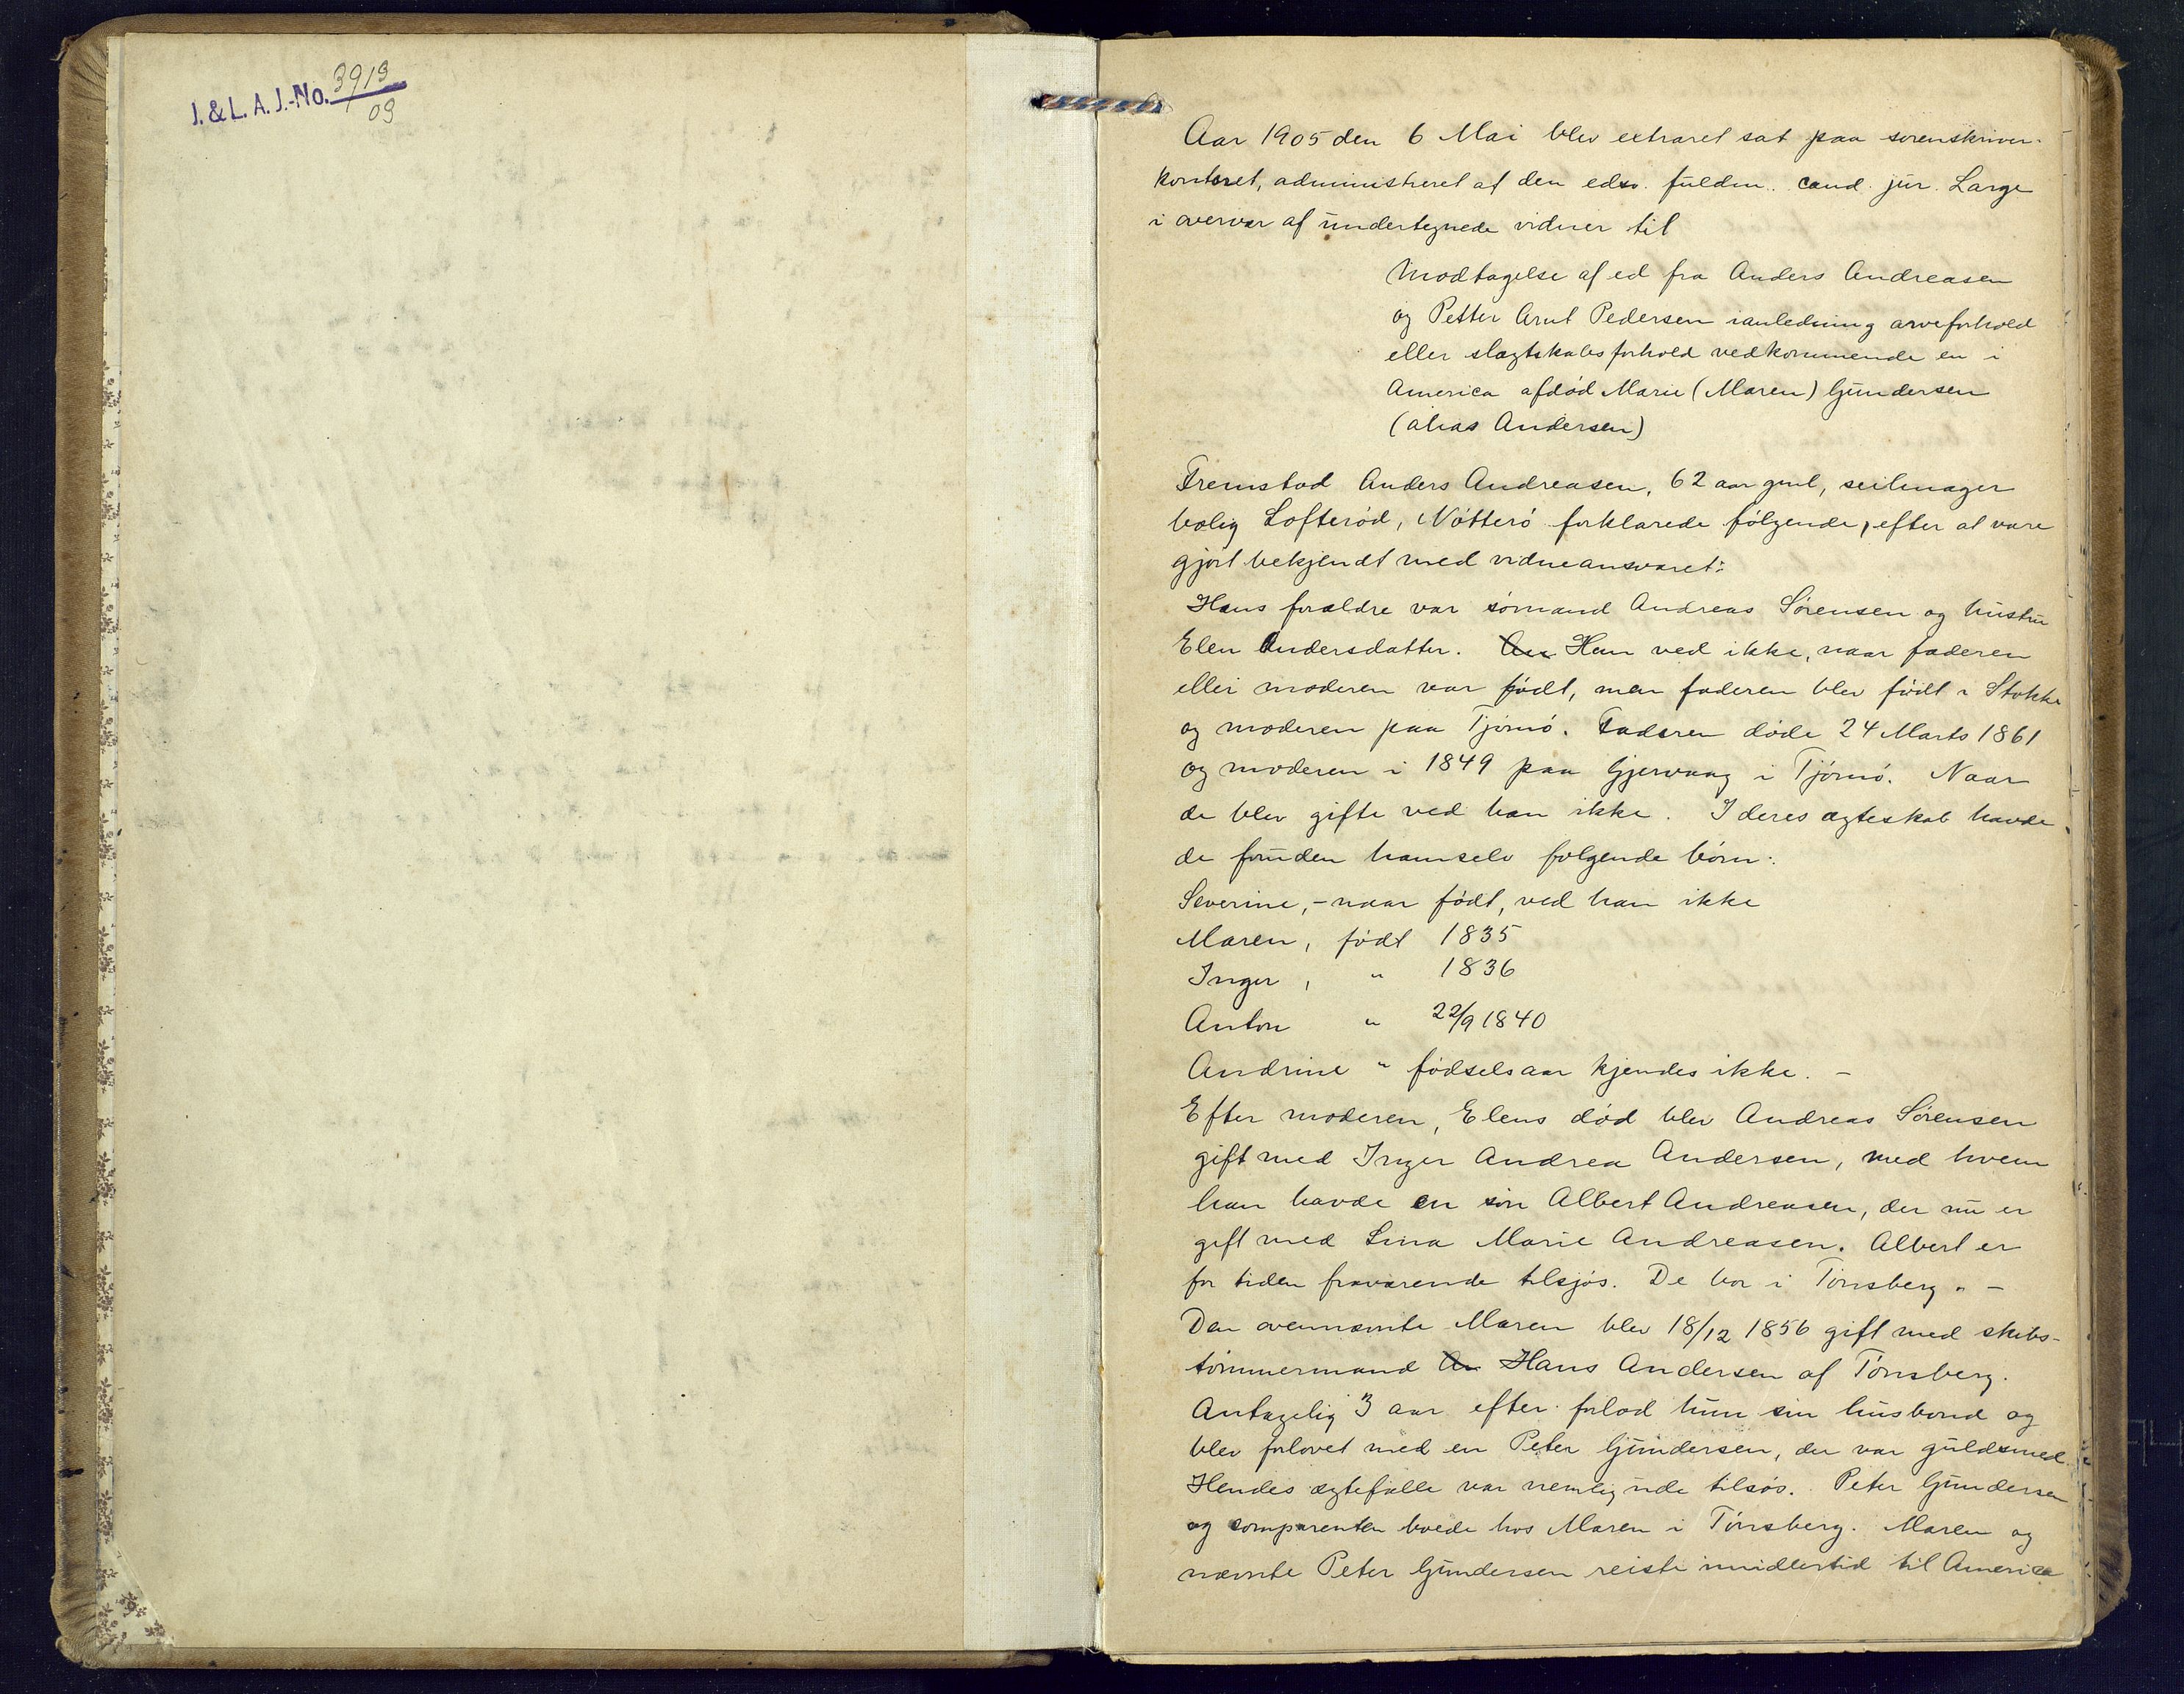 J. & L. A. J.-No. 3913/09
Aar 1905 den 6 Mai blev extraret sat paa sorenskriver-
kontoret, administreret af den edsv. fuldm. cand. jur. Lange
i overvær af undertegnede vidner til
Modtagelse af ed fra Anders Andreasen
og Petter Arnt Pedersen ianledning arveforhold
eller slægtskabsforhold vedkommende en i
America afdød Marie (Maren) Gundersen
(alias Andersen)
Fremstod Anders Andreasen, 62 aar gml, seilmager
bolig Lofterød, Nøtterø forklarede følgende, efter at være
gjort bekjendt med vidneansvaret:
Hans forældre var sømand Andreas Sørensen og hustru
Elen Andersdatter. An Han ved ikke, naar faderen
eller moderen var født, men faderen blev født i Stokke
og moderen paa Tjømø. Faderen døde 24 Marts 1861
og moderen i 1849 paa Gjervaag i Tjømø. Naar
de blev gifte ved han ikke. I deres ægteskab havde
de foruden hamselv følgende børn:
Severine, - naar født, ved han ikke
Maren, født 1835
Inger, " 1836
Anton " 22/9 1840
Andrine " fødselsaar kjendes ikke. -
Efter moderen, Elens død blev Andreas Sørensen
gift med Inger Andrea Andersen, med hvem
han havde en søn Albert Andreasen, der nu er
gift med Lina Marie Andreasen. Albert er
for tiden fraværende tilsjøs. De bor i Tønsberg. -
Den ovennævnte Maren blev 18/12 1856 gift med skibs-
tømmermand An Hans Andersen af Tønsberg.
Antagelig 3 aar efter forlod hun sin husbond og
blev forlovet med en Peter Gundersen, der var guldsmed.
Hendes ægtefælle var nemlig ude tilsøs. Peter Gundersen
og comparenten boede hos Maren i Tønsberg. Maren og
nævnte Peter Gundersen reiste imidlertid til America